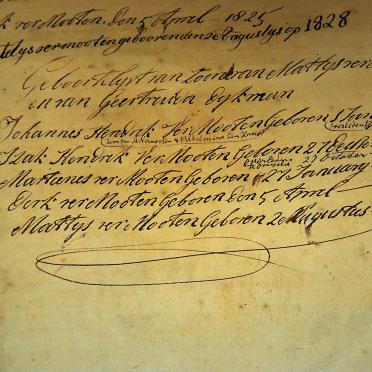 k ver Mooten. Don 5 April - 1825
ver mooten geboorenden 2e Augustys op 1828
Geboorhlyst van Zoone van Mattys ver
en van Geertruida Dykman
Johannes Hendrik Ver Mooten Geboren
Izak Hendrik Ver Mooten Geboren 27
21 October
Martienes ver Mooten Geboren 27 January
Derk ver Mooten Geboren Don 5 April
Mattys ver Mooten Geboren 2e Augustus